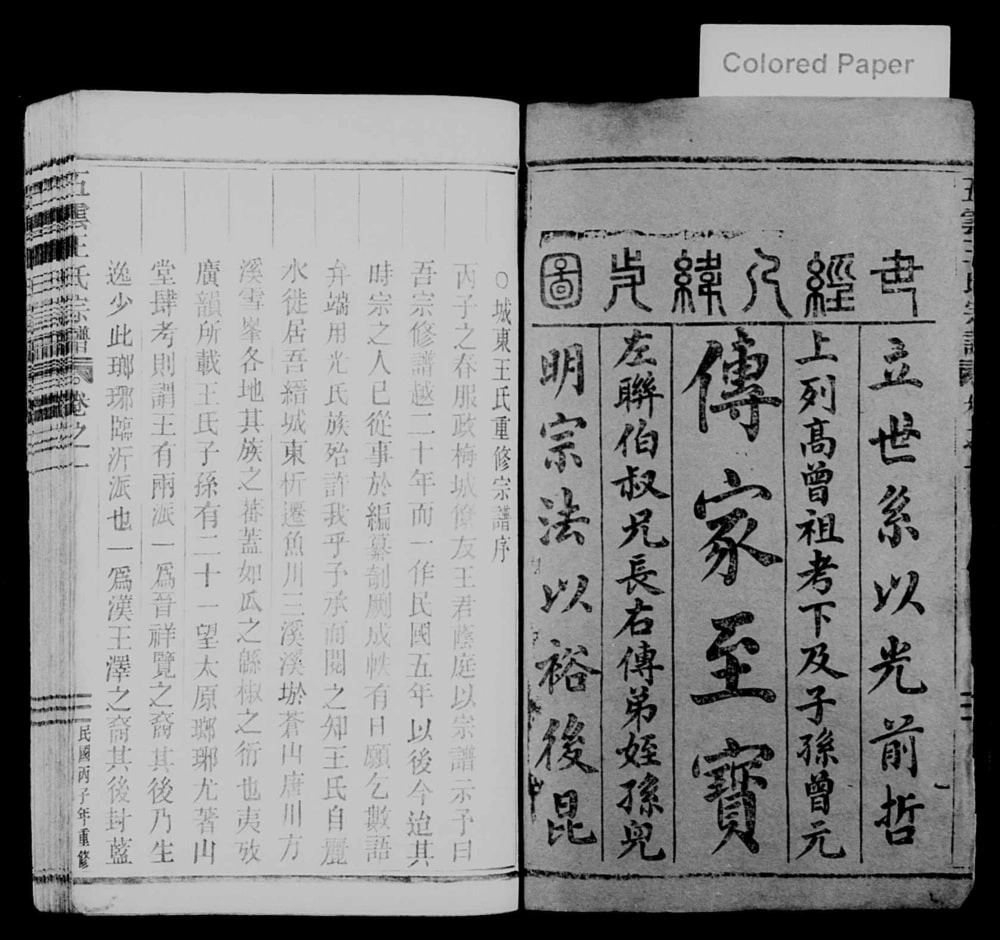 Colored Paper
書經人緯史圖
立世系以光前哲
上列高曾祖考下及子孫曾元
傳家至寶
左聯伯叔兄長右傳弟姪孫兒
明宗法以裕後昆
○城東王氏重修宗譜序
丙子之春服政梅城僚友王君蔭庭以宗譜示予曰
吾宗修譜越二十年而一作民國五年以後今迨其
時宗之人已從事於編纂剞劂成帙有日願乞數語
弁端用光氏族殆許我乎予承而閱之知王氏自麗
水徙居吾縉城東忻遷魚川三溪溪㙀蒼山唐川方
溪雪峯各地其族之蕃蓋如瓜之緜椒之衍也夷攷
廣韻所載王氏子孫有二十一望太原瑯琊尤著山
堂肆考則謂王有兩派一爲晉祥覽之裔其後乃生
逸少此瑯琊臨沂派也一爲漢王澤之裔其後封藍
五雲王氏宗譜
卷之一
民國丙子年重修